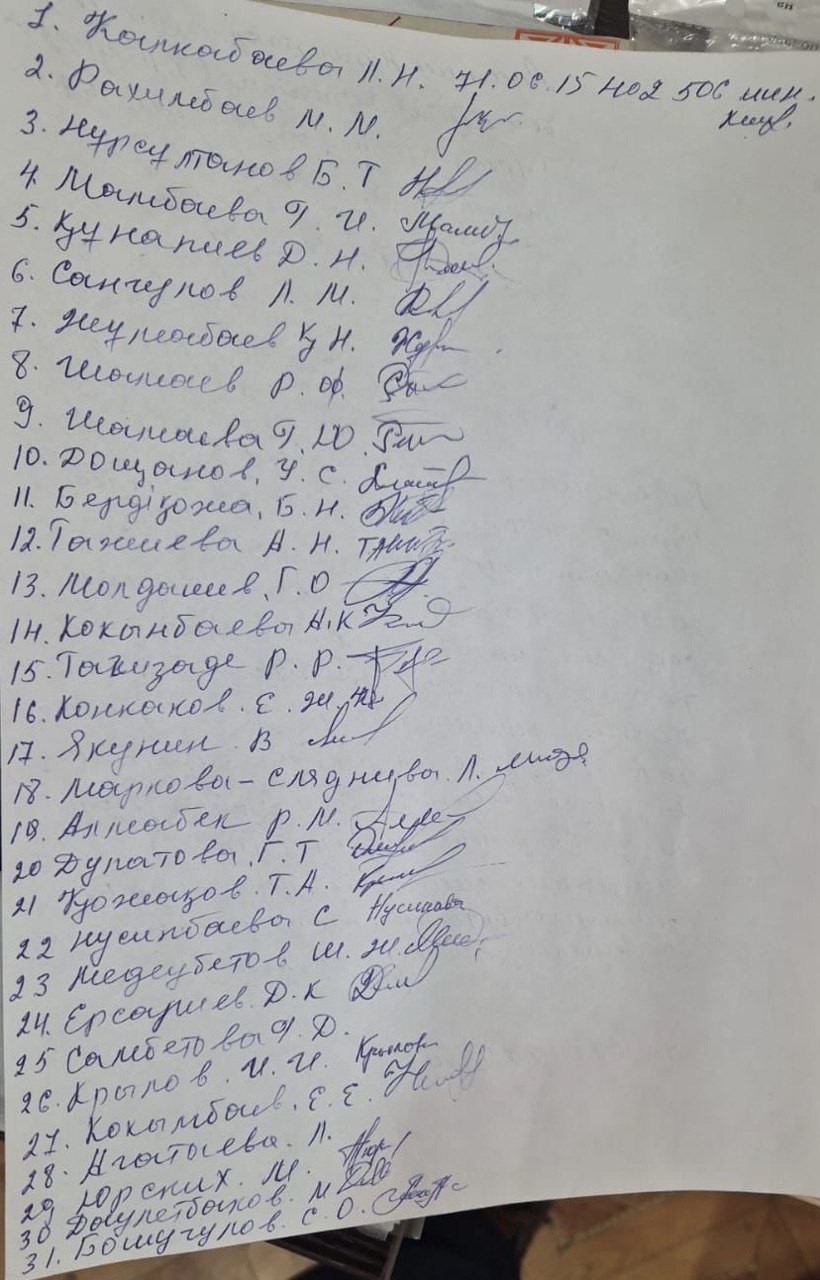 1. Калкабаева Л. Н. 71.06.15 402 506 мин.
2. Рахимбаев М. М.
3. Нурсултанов Б. Т
4. Мамбаева Г. И.
5. Құнапиев Д. Н.
6. Сангулов Л. М.
7. Жумабаев Қ Н.
8. Шамаев Р. Ф.
9. Шамаева Г. Ю.
10. Дощанов, У. С.
11. Бердіқожа, Б. Н.
12. Тажиева А. Н.
13. Молдашев, Г. О
14. Кокынбаева А. К
15. Тагизаде Р. Р.
16. Конкаков. Е. Ж.
17. Якунин. В
18. Маркова-Сляднева. Л.
19. Алмабек Р. М.
20 Дулатова. Г. Т
21 Қожақов. Т. А.
22 Нусипбаева С
23 Медеубетов Ш. Ж.
24. Ерсариев. Д. К
25 Самбетова Г. Д.
26. Крылов. И. И.
27. Кокымбаев. Е. Е.
28. Агатаева. Л.
29 Юрских. М.
30 Даулетбаков. М
31. Бошугулов. С. О.